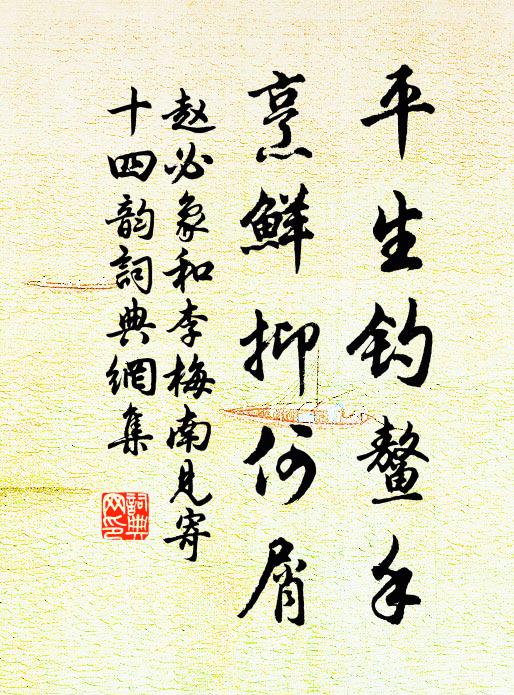 平生钓鳌手
烹鲜抑何屑
赵必象和李梅南见寄
十四韵詞典網集
詞典
网印